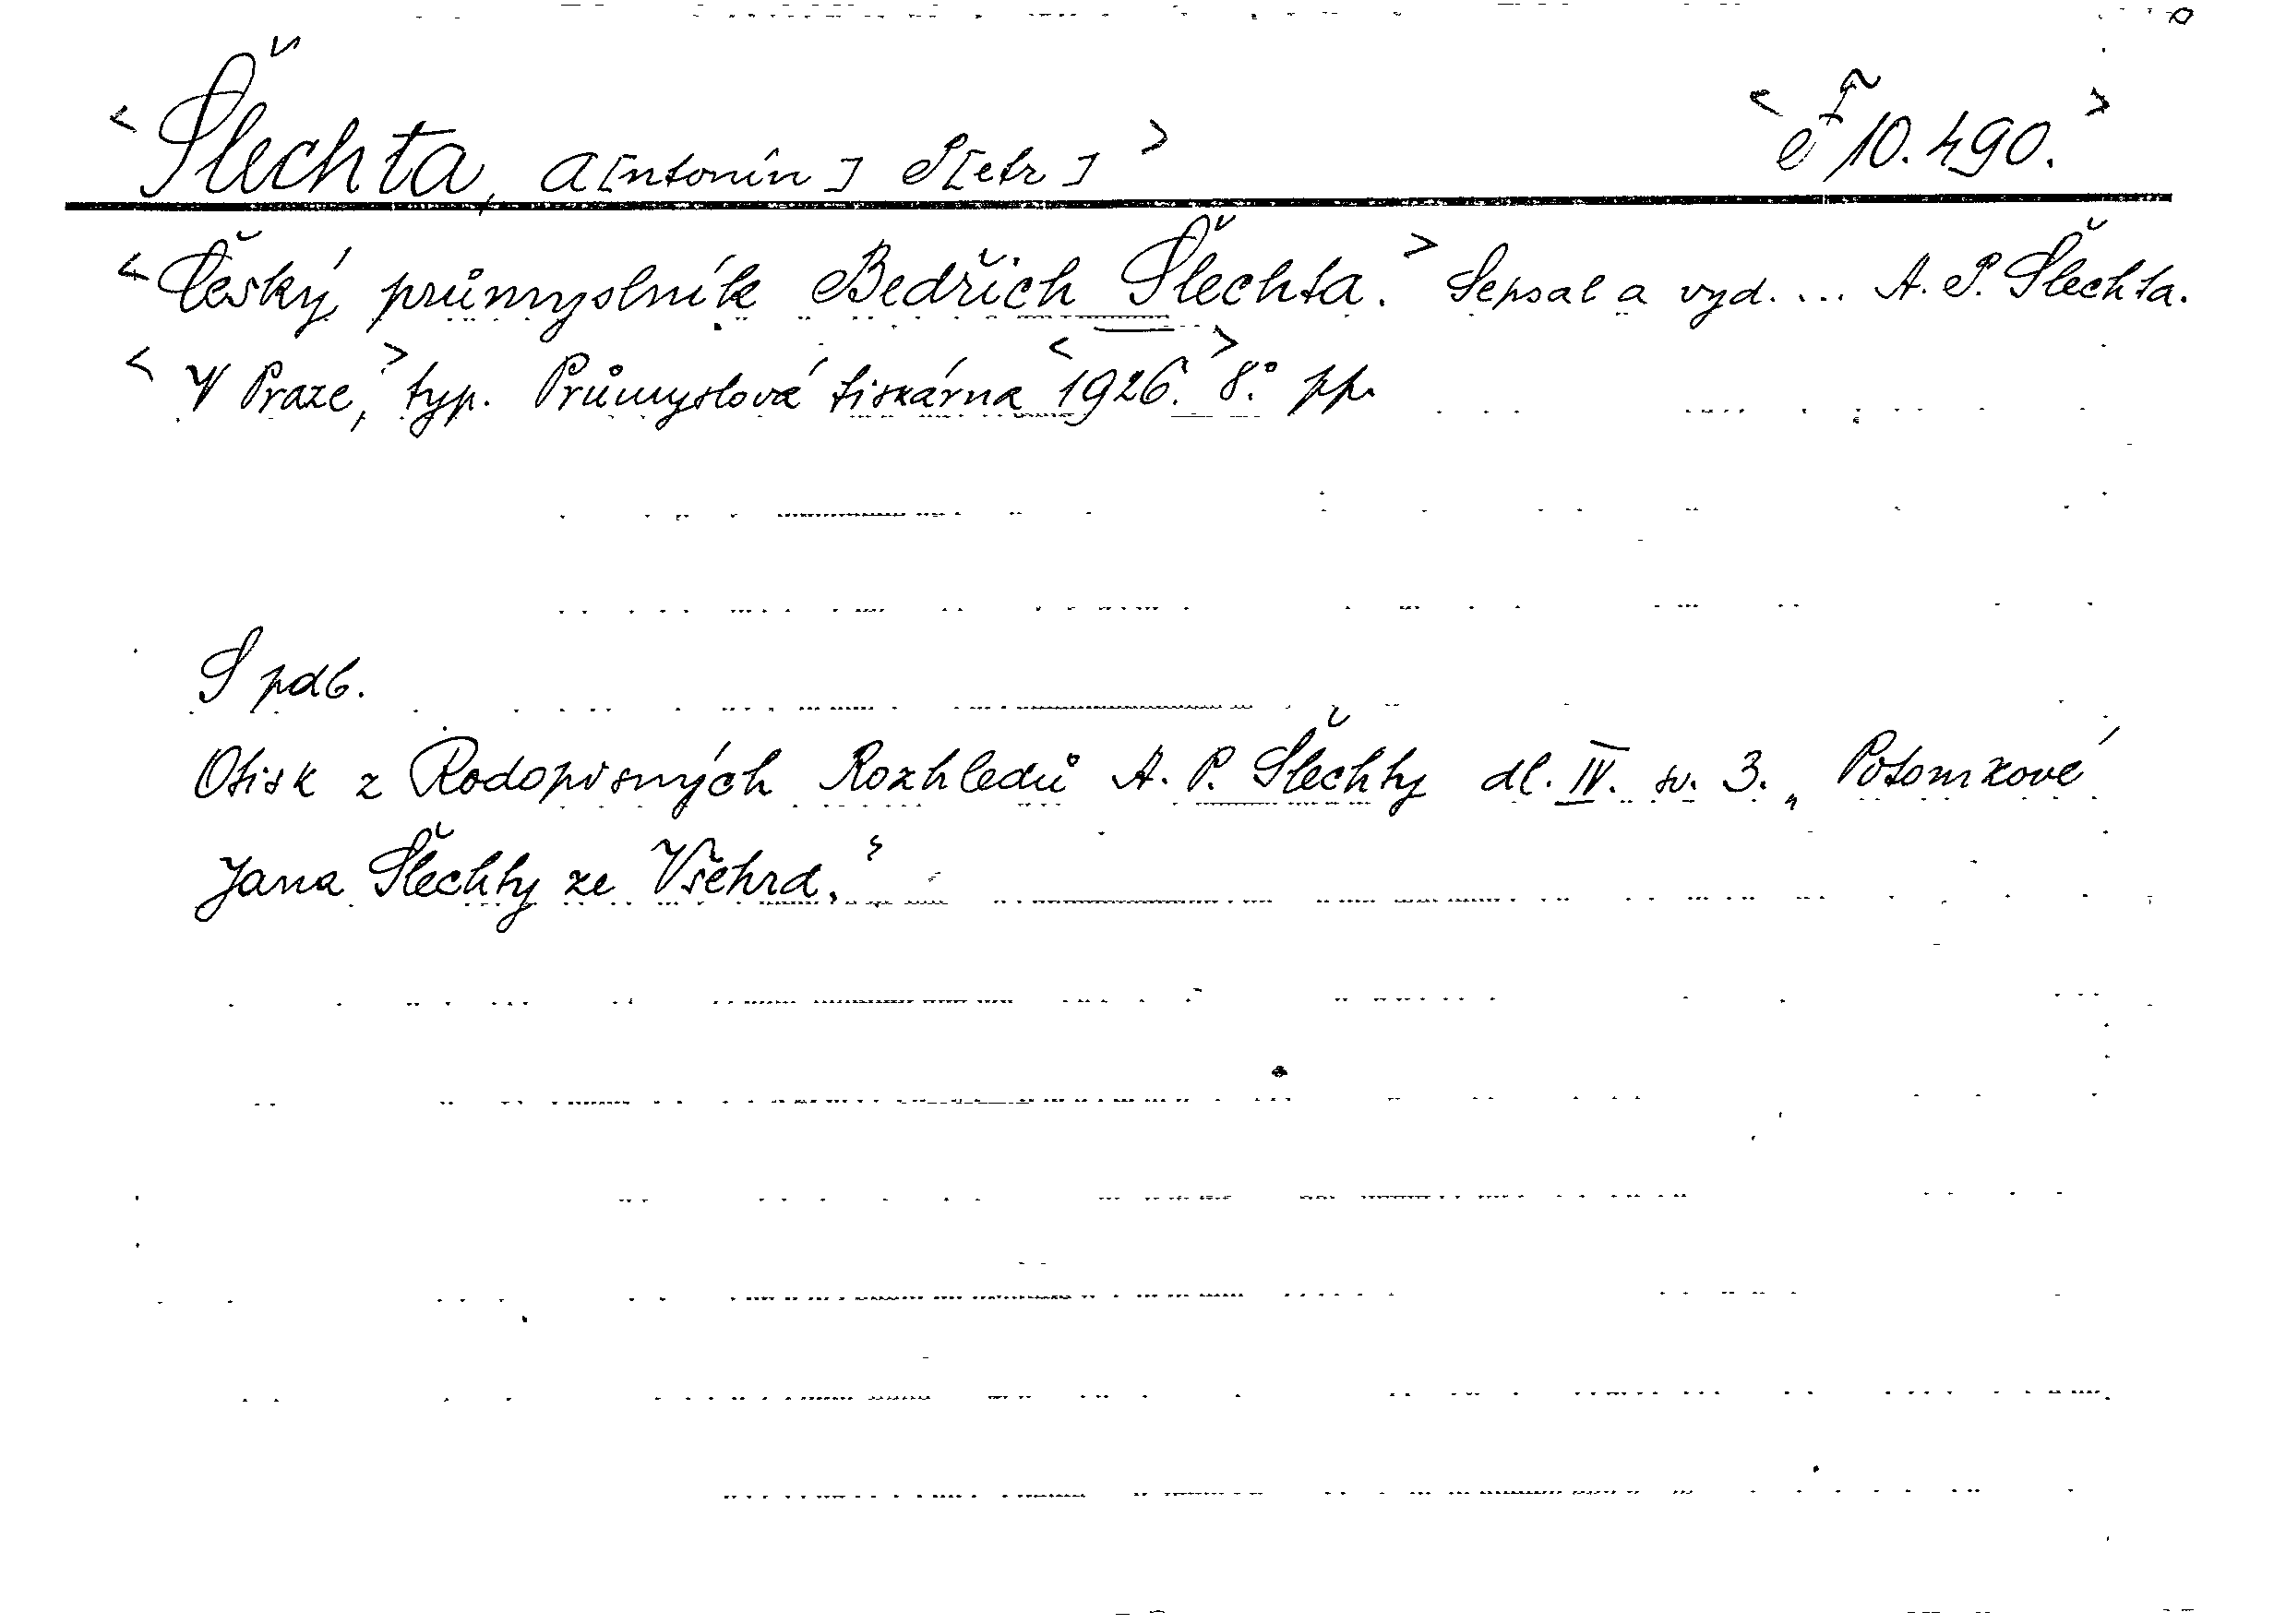 <Šlechta, A[ntonín] P[etr]> <eF 10.490.>
<Český průmyslník Bedřich Šlechta.> Sepsal a vyd. ... A. P. Šlechta.
<V Praze,> typ. Průmyslová tiskárna <1926.> 8.° pp.
S pdb.
Otisk z Rodopisných Rozhledů A. P. Šlechty dl. IV. sv. 3. „Potomkové
Jana Šlechty ze Všehrd."